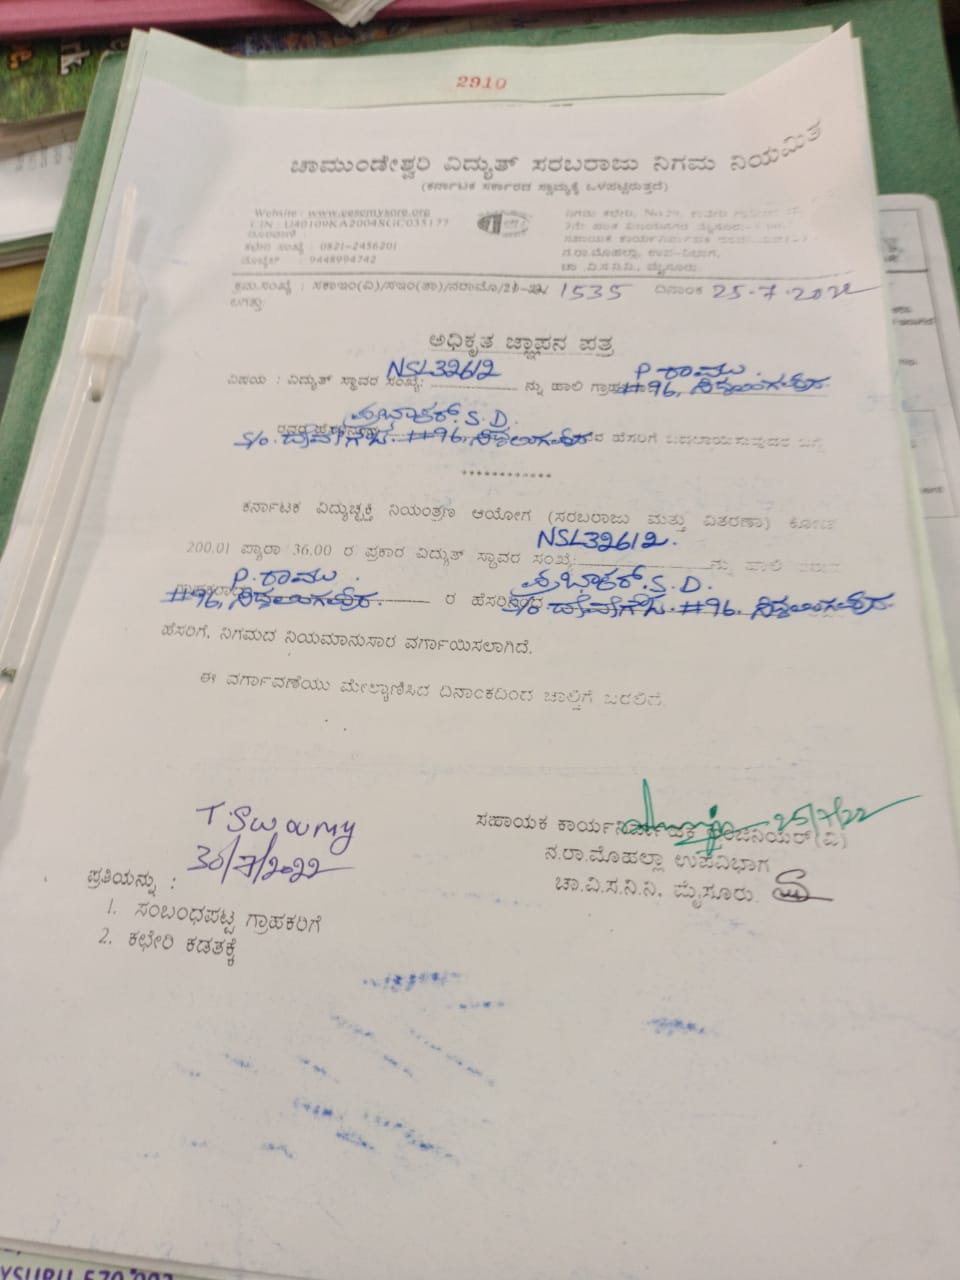 2910
ಚಾಮುಂಡೇಶ್ವರಿ ವಿದ್ಯುತ್ ಸರಬರಾಜು ನಿಗಮ ನಿಯಮಿತ
(ಕರ್ನಾಟಕ ಸರ್ಕಾರದ ಸ್ವಾಮ್ಯಕ್ಕೆ ಒಳಪಟ್ಟಿರುತ್ತದೆ)
Website : www.cescmysore.org
CIN : U40109KA2004SGC035177
ಕಛೇರಿ ಸಂಖ್ಯೆ : 0821-2456201
ಮೊಬೈಲ್ : 9448994742
ನಿಗಮ ಕಛೇರಿ, No.29,
ನ.ರಾ.ಮೊಹಲ್ಲಾ, ಉಪ-ವಿಭಾಗ,
ಚಾ.ವಿ.ಸ.ನಿ.ನಿ, ಮೈಸೂರು.
ಕ್ರಮ.ಸಂಖ್ಯೆ : ಸಕಾಇಂ(ವಿ)/ಸಇಂ(ತಾ)/ನರಾಮೊ/21-22/ 1535 ದಿನಾಂಕ 25-7-2022
ಲಗತ್ತು:
ಅಧಿಕೃತ ಜ್ಞಾಪನ ಪತ್ರ
ವಿಷಯ : ವಿದ್ಯುತ್ ಸ್ಥಾವರ ಸಂಖ್ಯೆ: NSL32612 ನ್ನು ಹಾಲಿ P. ರಾಮು. #96,
ಪ್ರಭಾಕರ್. S. D.
S/o. #96, ಹೆಸರಿಗೆ ಬದಲಾಯಿಸುವುದರ ಬಗ್ಗೆ
************
ಕರ್ನಾಟಕ ವಿದ್ಯುಚ್ಛಕ್ತಿ ನಿಯಂತ್ರಣ ಆಯೋಗ (ಸರಬರಾಜು ಮತ್ತು ವಿತರಣಾ) ಕೋಡ್
200.01 ಪ್ಯಾರಾ 36.00 ರ ಪ್ರಕಾರ ವಿದ್ಯುತ್ ಸ್ಥಾವರ ಸಂಖ್ಯೆ: NSL32612. ನ್ನು ಹಾಲಿ
P. ರಾಮು. #96, ರ ಹೆಸರಿನಿಂದ ಪ್ರಭಾಕರ್. S. D. S/o #96.
ಹೆಸರಿಗೆ, ನಿಗಮದ ನಿಯಮಾನುಸಾರ ವರ್ಗಾಯಿಸಲಾಗಿದೆ.
ಈ ವರ್ಗಾವಣೆಯು ಮೇಲ್ಕಾಣಿಸಿದ ದಿನಾಂಕದಿಂದ ಚಾಲ್ತಿಗೆ ಬರಲಿದೆ.
T. Swamy
30/7/2022
25/7/22
ಸಹಾಯಕ ಕಾರ್ಯನಿರ್ವಾಹಕ ಇಂಜಿನಿಯರ್(ವಿ)
ನ.ರಾ.ಮೊಹಲ್ಲಾ ಉಪವಿಭಾಗ
ಚಾ.ವಿ.ಸ.ನಿ.ನಿ, ಮೈಸೂರು.
ಪ್ರತಿಯನ್ನು :
1. ಸಂಬಂಧಪಟ್ಟ ಗ್ರಾಹಕರಿಗೆ
2. ಕಛೇರಿ ಕಡತಕ್ಕೆ